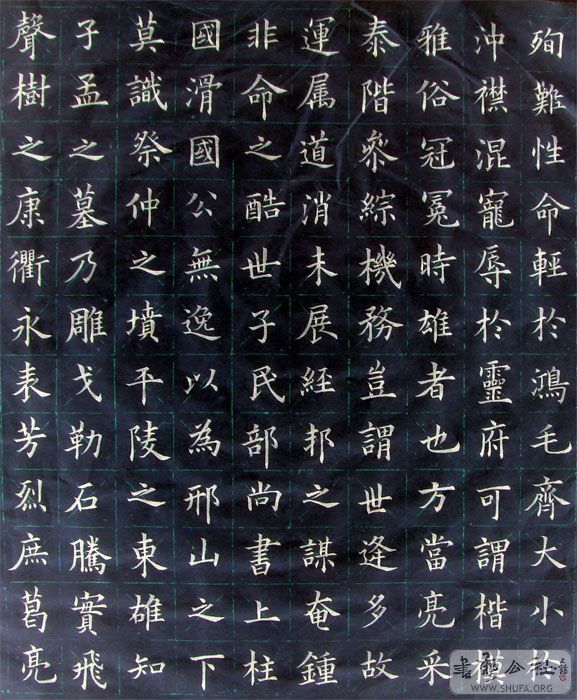 殉難性命輕於鴻毛齊大小於
沖襟混寵辱於靈府可謂楷模
雅俗冠冕時雄者也方當亮采
泰階叅綜機務豈謂世逢多故
運属道消未展經邦之謀奄鍾
非命之酷世子民部尚書上柱
國滑國公無逸以為邢山之下
莫識祭仲之墳平陵之東雄知
子孟之墓乃雕戈勒石騰實飛
聲樹之康衢永表芳烈庶葛亮
書法公社
WWW.SHUFA.ORG